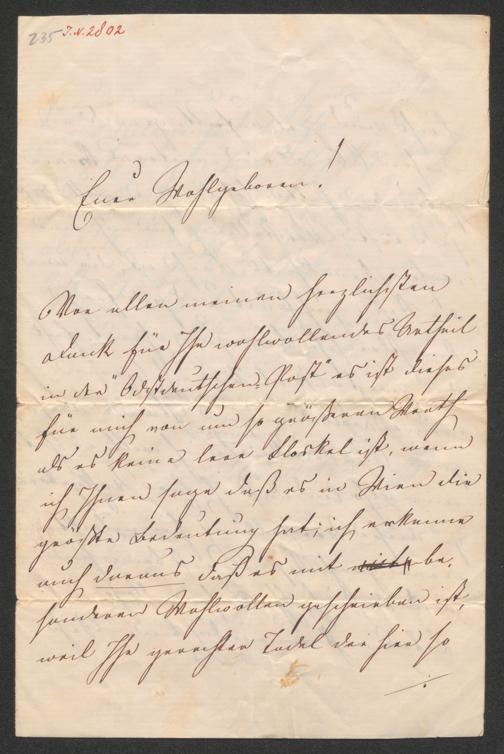 235 I.N. 2802
Euer Wohlgeboren!
Vor allen meinen herzlichsten
Dank für Ihr wohlwollendes Urtheil
in der "Ostdeutschen-Post" es ist dieses
für mich von um so größeren Werth
als es keine leere Floskel ist, wenn
ich Ihnen sage daß es in Wien die
größte Bedeutung hat; ich erkenne
auch daraus daß es mit be-
sonderen Wohlwollen geschrieben ist,
weil Ihr gerechter Tadel der hier so
./.